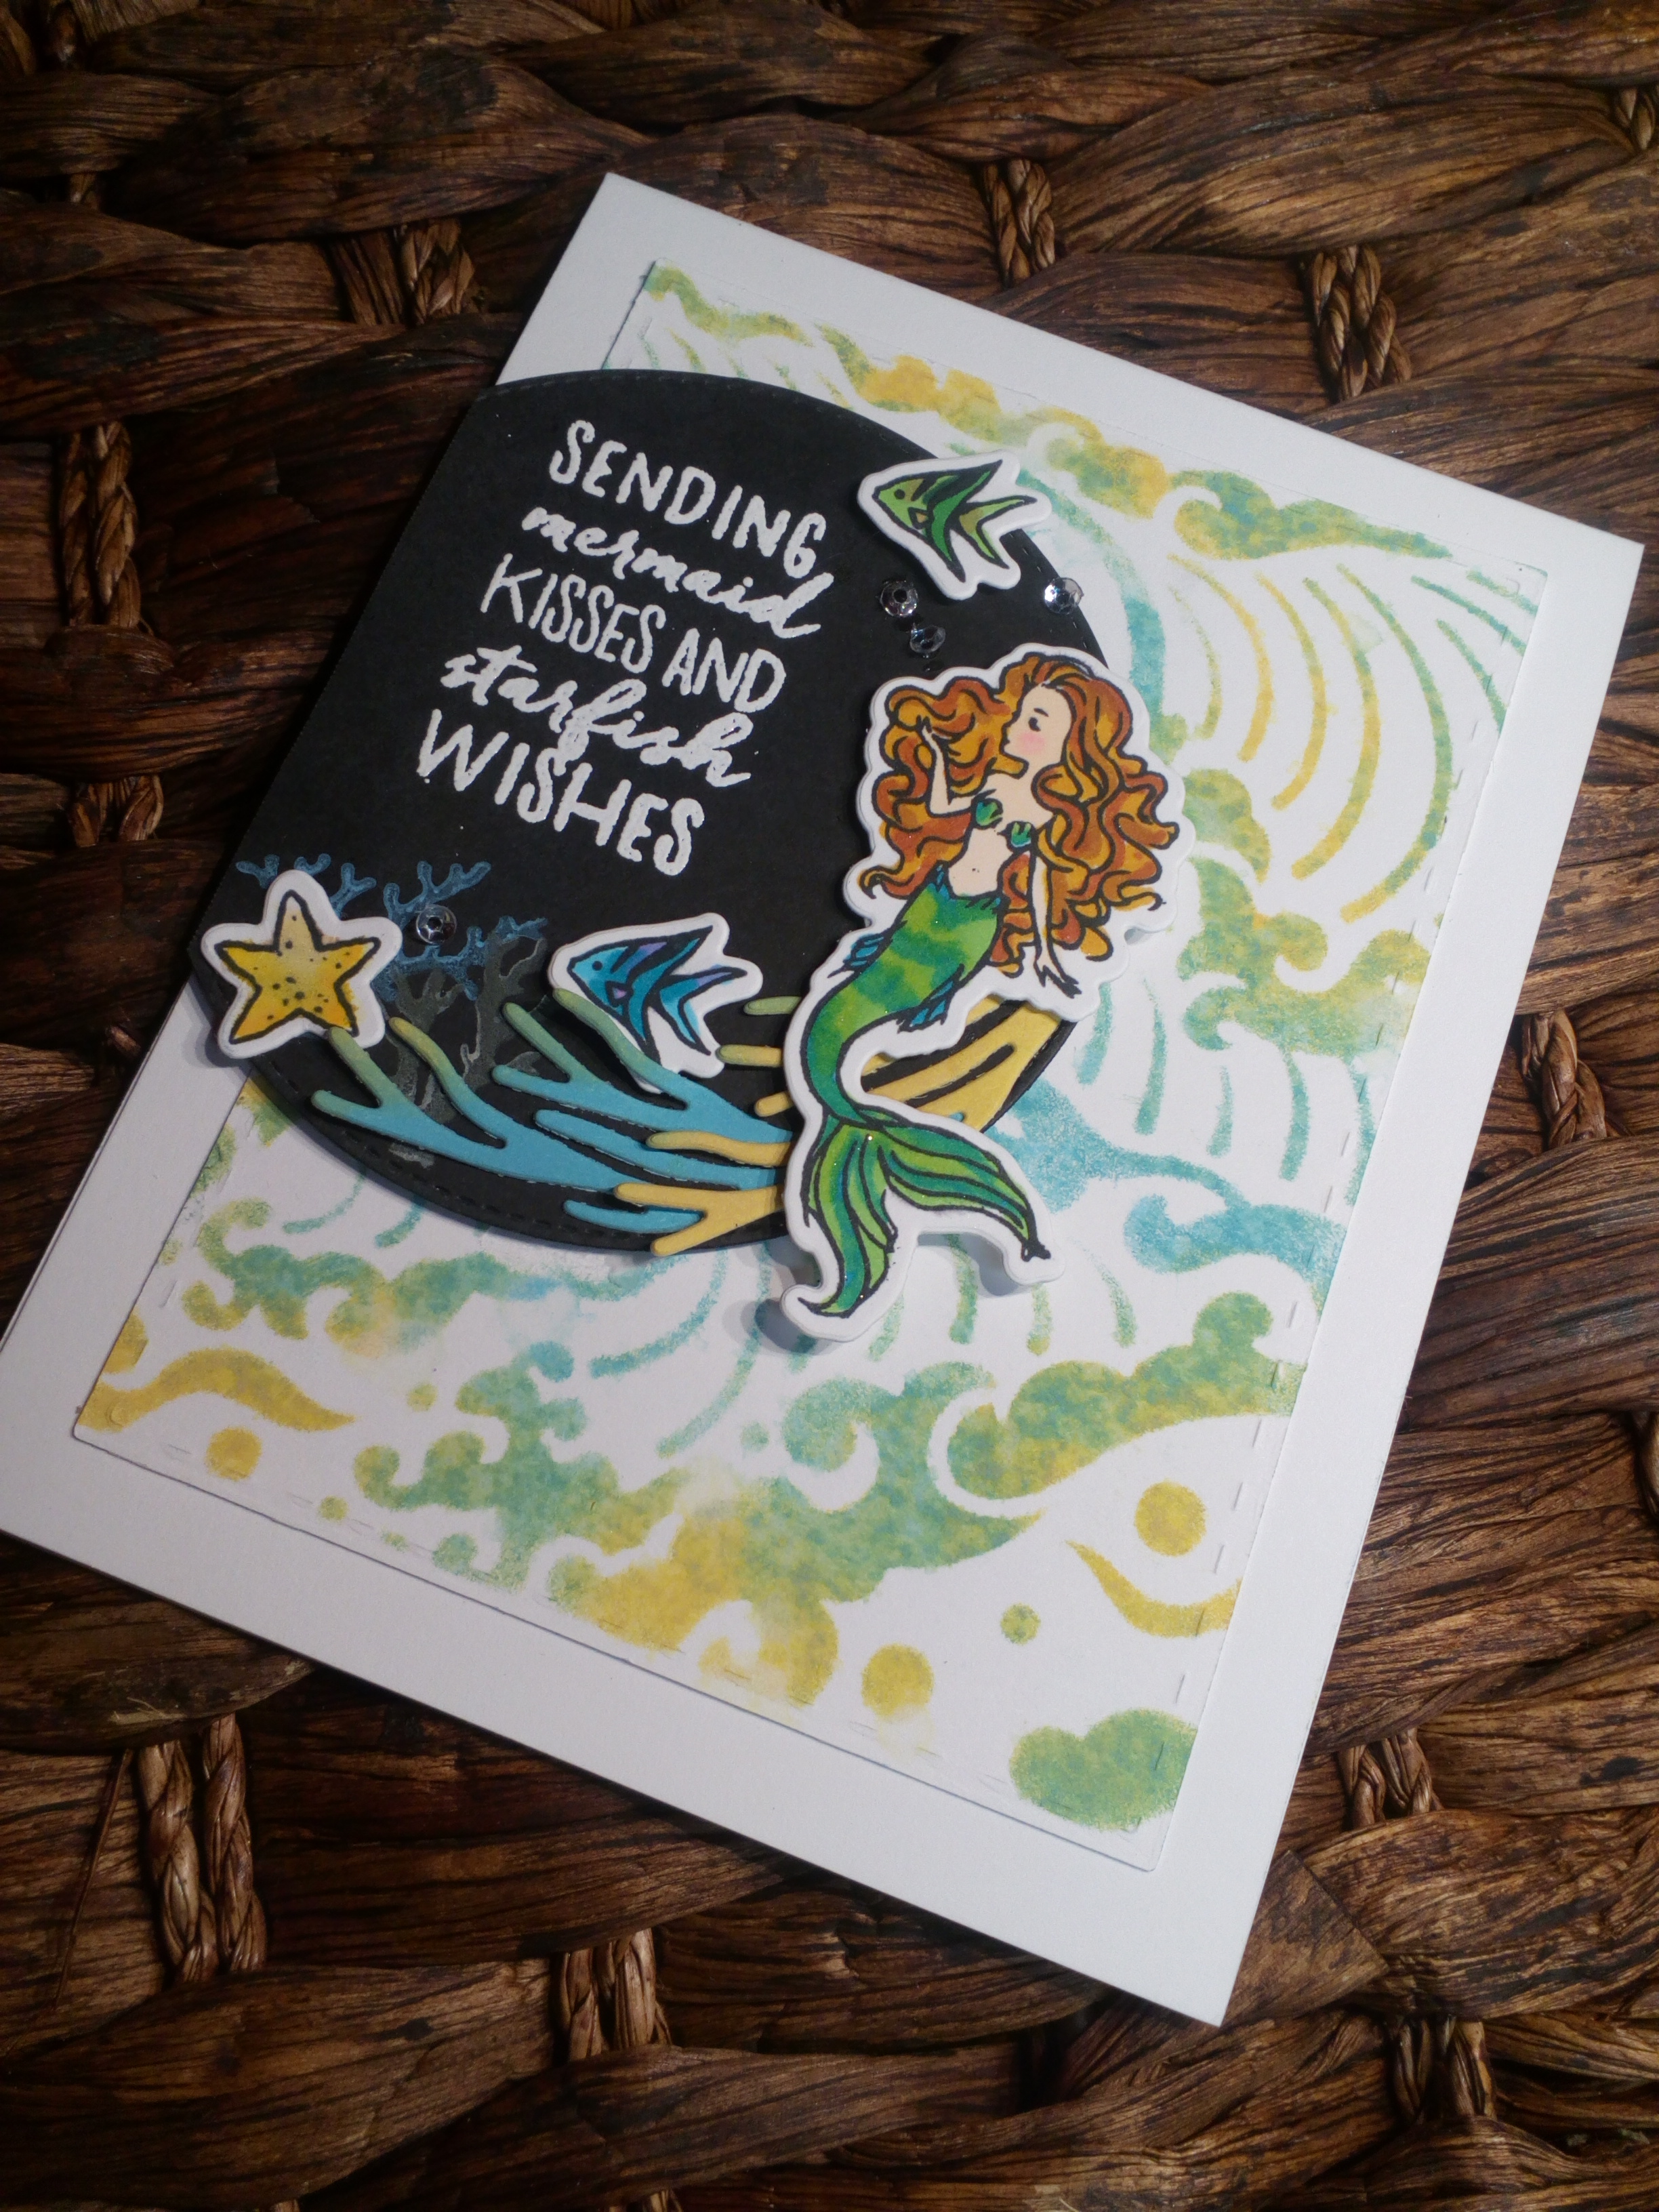 SENDING
mermaid
KISSES AND
starfish
WISHES